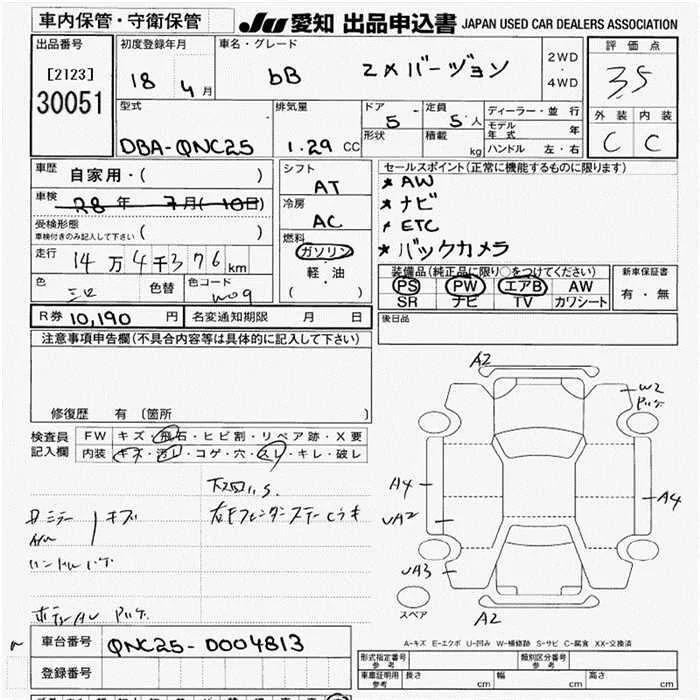 車内保管・守衛保管
JU 愛知 出品申込書 JAPAN USED CAR DEALERS ASSOCIATION
出品番号 [2123] 30051
初度登録年月 18 4月
車名・グレード bB Zメバージョン
2WD・4WD
評価点 3.5
外装 C 内装 C
型式 DBA-QNC25
排気量 1.29 CC
ドア 5 定員 5人
形状 積載 kg
ディーラー・並行
モデル年式 年
ハンドル 左・右
車歴 自家用・( )
車検 28年 7月(10日)
受検形態 車検付きのみ記入して下さい ( )
走行 14万4千376km
色 色替 色コード W09
シフト AT
冷房 AC
燃料 ガソリン
軽・油
( )
セールスポイント(正常に機能するものに限ります)
* AW
* ナビ
* ETC
* バックカメラ
装備品(純正品に限り○をつけてください)
PS PW エアB AW
SR ナビ TV カワシート
新車保証書 有・無
後日品
R券 10,190円 名変通知期限 月 日
注意事項申告欄(不具合内容等は具体的に記入して下さい)
修復歴 有 〔箇所 〕
検査員記入欄
FW キズ・飛石・ヒビ割・リペア跡・X要
内装 キズ・汚レ・コゲ・穴・スレ・キレ・破レ
キズ
A2
W2
A4
A4
UA2
UA3
A2
スペア
A-キズ E-エクボ U-凹み W-補修跡 S-サビ C-腐食 XX-交換済
車台番号 QNC25-0004813
登録番号
形式指定番号 参考
類別区分番号 参考
車庫証明用 参考 長さ cm 幅 cm 高さ cm